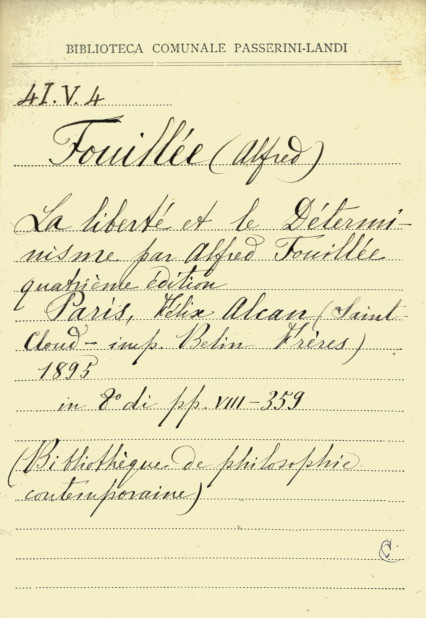 BIBLIOTECA COMUNALE PASSERINI-LANDI
4I.V.4
Fouillée (Alfred)
La liberté et le Détermi-
nisme par Alfred Fouillée
quatrième édition
Paris, Félix Alcan (Saint-
Cloud - imp. Belin Frères)
1895
in 8° di pp. VIII-359
(Bibliothèque de philosophie
contemporaine)
C